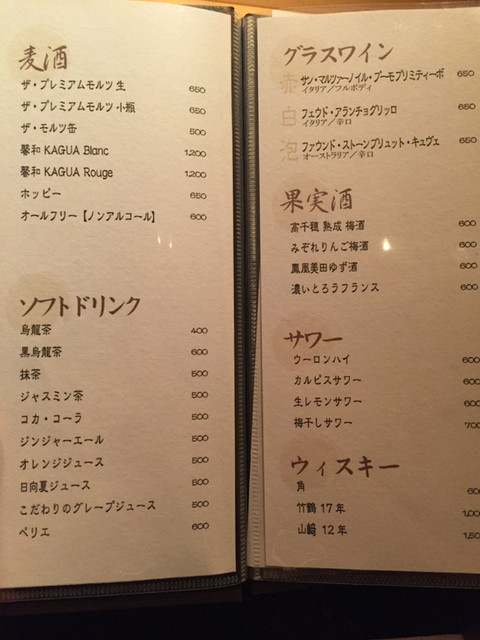 麦酒
ザ・プレミアムモルツ 生 650
ザ・プレミアムモルツ 小瓶 650
ザ・モルツ缶 500
馨和 KAGUA Blanc 1,200
馨和 KAGUA Rouge 1,200
ホッピー 650
オールフリー【ノンアルコール】 600
ソフトドリンク
烏龍茶 400
黒烏龍茶 600
抹茶 500
ジャスミン茶 500
コカ・コーラ 500
ジンジャーエール 500
オレンジジュース 500
日向夏ジュース 500
こだわりのグレープジュース 500
ペリエ 600
グラスワイン
赤 サン・マルツァーノイル・プーモプリミティーボ 650
イタリア／フルボディ
白 フェウド・アランチョグリッロ 650
イタリア／辛口
泡 ファウンド・ストーンブリュット・キュヴェ 650
オーストラリア／辛口
果実酒
高千穂 熟成 梅酒 600
みぞれりんご梅酒 600
鳳凰美田ゆず酒 600
濃いとろラフランス 600
サワー
ウーロンハイ 600
カルピスサワー 600
生レモンサワー 600
梅干しサワー 700
ウィスキー
角
竹鶴 17年
山崎 12年